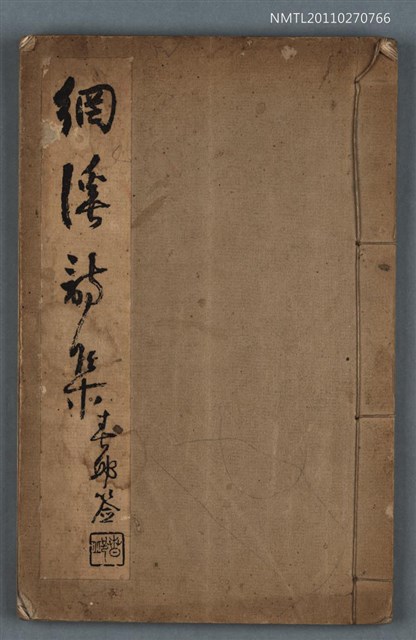 NMTL20110270766
網溪詩集
春郎簽